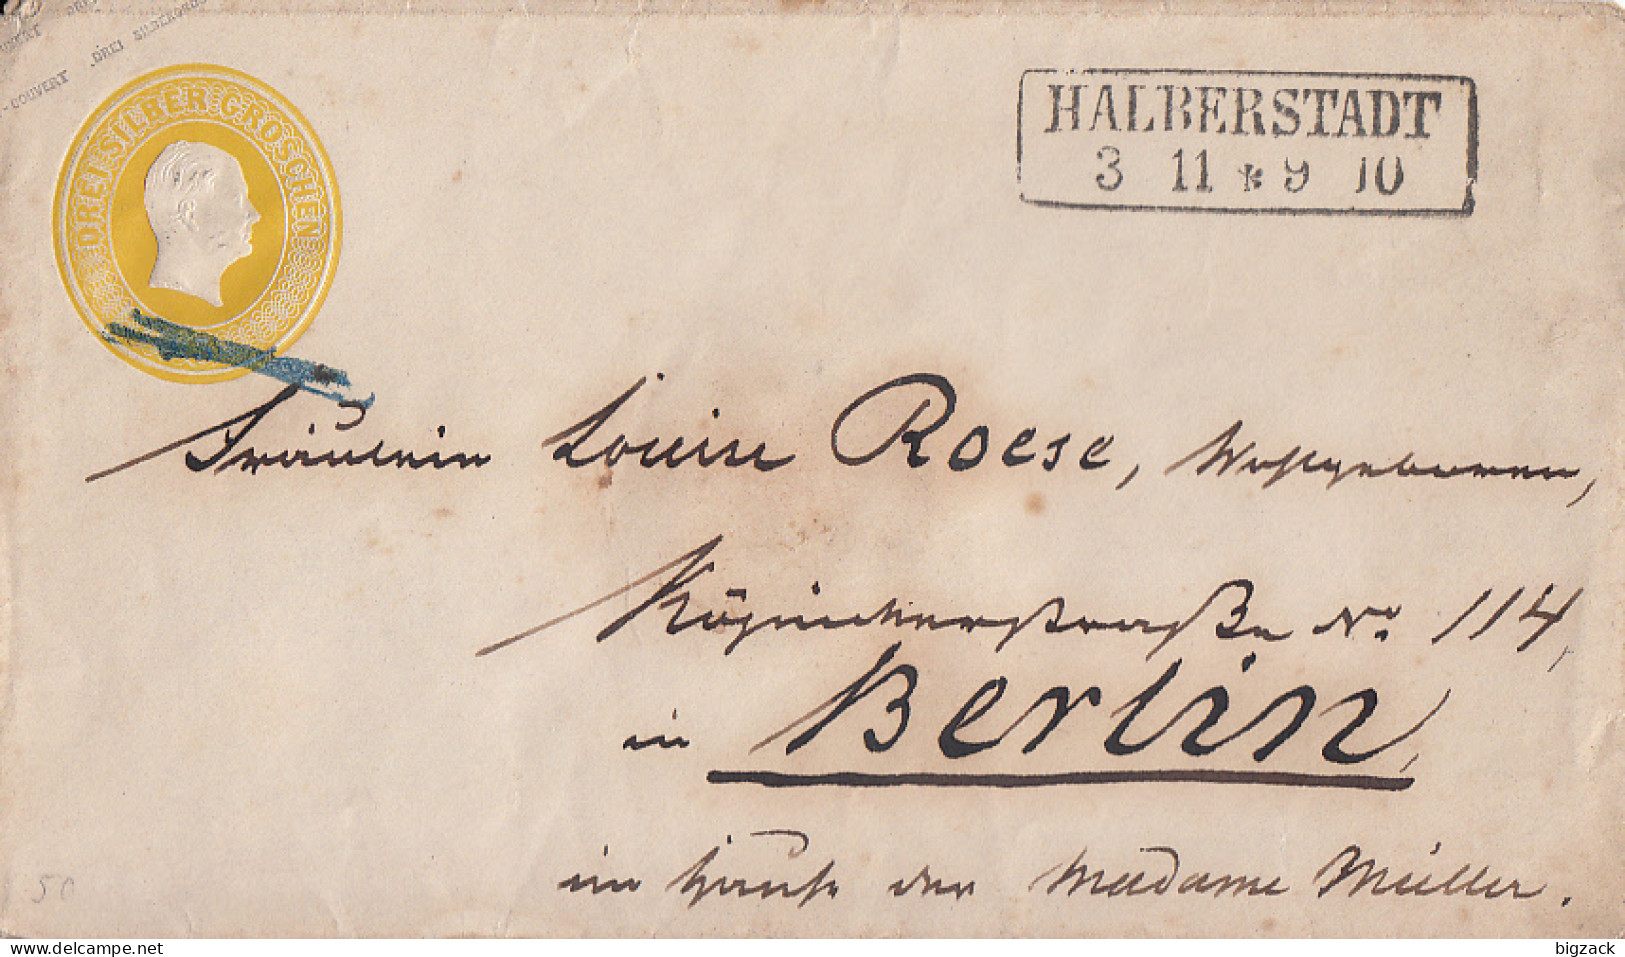 COUVERT DREI SILBERGROS
DREI SILBER GROSCHEN
HALBERSTADT
3 11 * 9 10
Fräulein Louise Roese, Wohlgeboren,
Köpnickerstraße No. 114,
in Berlin,
im Hause der Madame Müller.
50
www.delcampe.net
bigzack